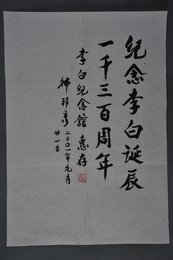 纪念李白诞辰
一千三百周年
李白纪念馆惠存
二〇〇一年九月
廿一日